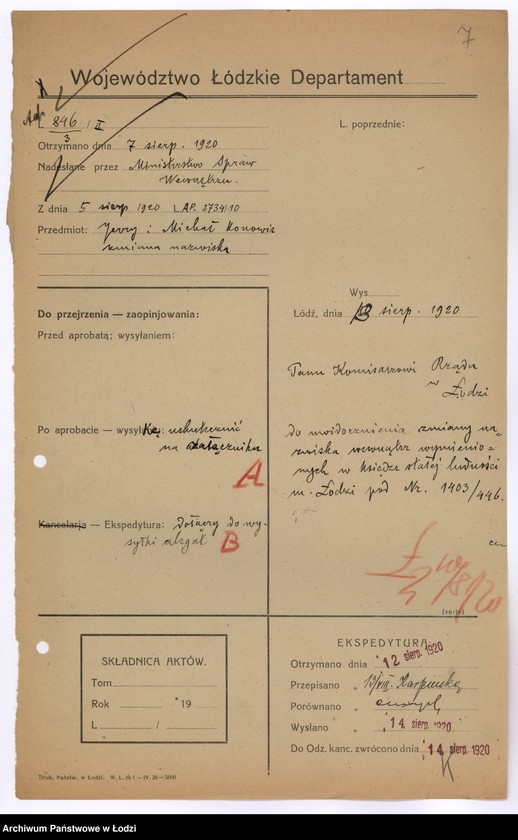 7
Województwo Łódzkie Departament
L 846/3 / II
L. poprzednie:
Otrzymano dnia 7 sierp. 1920
Nadesłane przez Ministerstwo Spraw
Wewnętrzn.
Z dnia 5 sierp 1920 L. AP. 3734/10
Przedmiot: Jerzy i Michał Konowic
zmiana nazwiska
Do przejrzenia — zaopinjowania:
Przed aprobatą; wysyłaniem:
Po aprobacie — uskutecznić
na załączniku
A
Kancelarja — Ekspedytura: dołączy do wy-
syłki
B
Wys
Łódź, dnia sierp. 1920
Panu Komisarzowi Rządu
w Łodzi
do uwidocznienia zmiany na-
zwiska wewnątrz wymienio-
nych w księdze stałej ludności
m. Łodzi pod Nr. 1403/446.
10/8/20
(verte)
SKŁADNICA AKTÓW.
Tom
Rok 19
L /
EKSPEDYTURA:
Otrzymano dnia 12 sierp. 1920
Przepisano " 13/VIII. Karpińska
Porównano "
Wysłano " 14 sierp. 1920
Do Odz. kanc. zwrócono dnia 14 sierp. 1920
Druk. Państw. w Łodzi. W. L. № 1 — IV. 20 — 5000
Archiwum Państwowe w Łodzi